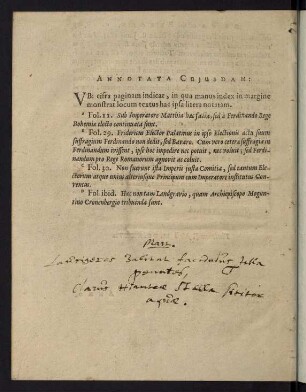 ANNOTATA CUJUSDAM:
VBi cifra paginam indicat, in qua manus index in margine
monstrat locum textus hac ipsa litera notatum.
a Fol. 11. Sub Imperatore Matthia hac facta, sed à Ferdinando Rege
Bohemiæ electo continuata sunt.
b Fol. 29. Fridericus Elector Palatinus in ipso Electionis actu suum
suffragium Ferdinando non dedit, sed Bavaro. Cum vero cætera suffragia in
Ferdinandum irissent, ipse hoc impedire nec potuit, nec voluit; sed Ferdi-
nandum pro Rege Romanorum agnovit ac coluit.
c Fol. 30. Non fuerunt ista Imperii justa Comitia, sed tantum Ele-
ctorum atque unius alteriusque Principum cum Imperatore institutus Con-
ventus.
d Fol. ibid. Hæc non tam Landgravio, quam Archiepiscopo Mogun-
tino Cronenbergio tribuenda sunt.
Mart.